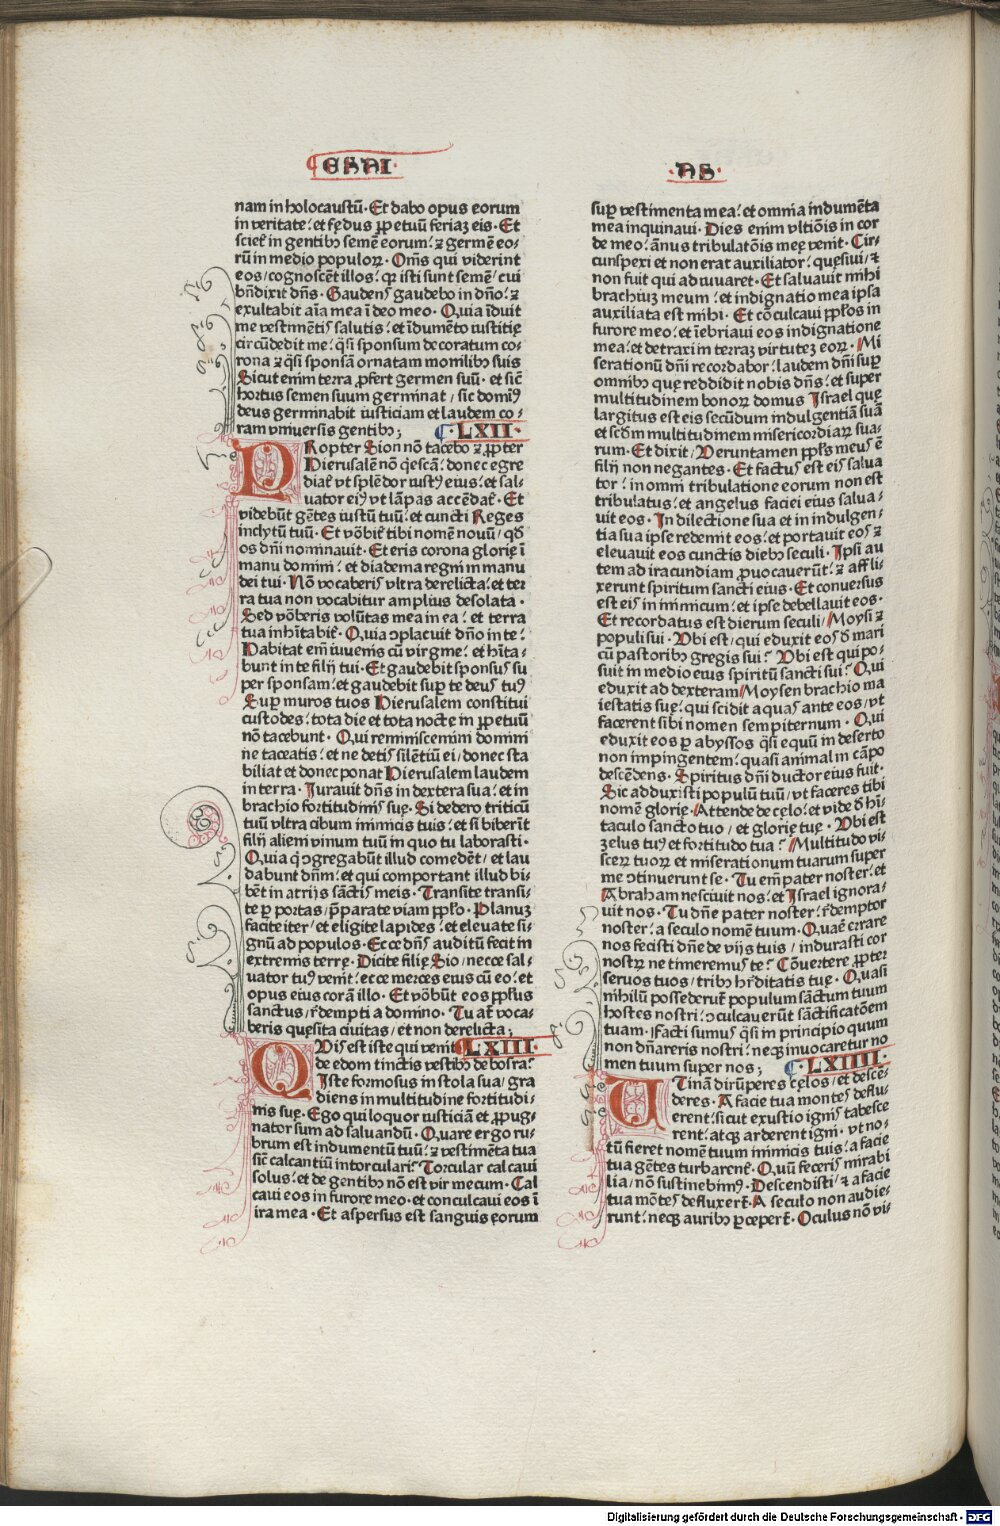 ESAI
AS
nam in holocaustū· Et dabo opus eorum
in veritate: et fędus ꝑpetuū feriaʒ eis· Et
scieť in gentibꝫ semē eorum: ⁊ germē eo⸗
rū in medio populoꝝ· Om̄s qui viderint
eos/cognoscēt illos: qꝛ isti sunt semē/cui
bn̄dixit dn̄s· Gaudens gaudebo in dn̄o: ⁊
exultabit aīa mea ī deo meo· Quia īduit
me vestimētis salutis: et īdumēto iustitię
circūdedit me: q̄si sponsum decoratum co⸗
rona ⁊ q̄si sponsā ornatam monilibꝫ suis
Sicut enim terra ꝓfert germen suū· et sic̄
hortus semen suum germinat/sic domin⁹
deus germinabit iusticiam et laudem co⸗
ram vniuersis gentibꝫ;
·LXII·
PRopter Sion nō tacebo ⁊ ꝓpter
Hierusalē nō q̄escā: donec egre
diať vt splēdor iust⁹ eius: et sal⸗
uator ei⁹ vt lāpas accēdať· Et
videbūt gētes iustū tuū: et cuncti Reges
inclytū tuū· Et vōbiť tibi nomē nouū/qď
os dn̄i nominauit· Et eris corona glorię ī
manu domini: et diadema regni in manu
dei tui· Nō vocaberis vltra derelicta: et ter
ra tua non vocabitur amplius desolata·
Sed vōberis volūtas mea in ea: et terra
tua inhītabiť· Quia ꝯplacuit dn̄o in te:
Habitat em̄ iuuenis cū virgine: et hīta⸗
bunt in te filij tui· Et gaudebit sponsus su
per sponsam: et gaudebit suꝑ te deus tu⁹
Suꝑ muros tuos Hierusalem constitui
custodes: tota die et tota nocte in ꝑpetuū
nō tacebunt· Qui reminiscemini domini
ne taceatis: et ne detis silētiū ei/donec sta
biliat et donec ponat Hierusalem laudem
in terra· Iurauit dn̄s in dextera sua: et in
brachio fortitudinis suę· Si dedero triticū
tuū vltra cibum inimicis tuis: et si biberīt
filij alieni vinum tuū in quo tu laborasti·
Quia q̇ ꝯgregabūt illud comedēt/et lau
dabunt dn̄m: et qui comportant illud bi⸗
bēt in atrijs sāctis meis· Transite transi⸗
te ꝑ portas/p̄parate viam ppl̄o· Planuʒ
facite iter/et eligite lapides: et eleuate si⸗
gnū ad populos· Ecce dn̄s auditū fecit in
extremis terrę· Dicite filię Sio/necce sal⸗
uator tu⁹ venit: ecce merces eius cū eo: et
opus eius corā illo· Et vōbūt eos ppl̄us
sanctus/rďempti a domino· Tu at̄ voca⸗
beris quęsita ciuitas/et non derelicta;
·LXIII·
QVis est iste qui venit
de edom tinctis vestibꝫ de bosra:
Iste formosus in stola sua/gra
diens in multitudine fortitudi⸗
nis suę· Ego qui loquor iusticiā et ꝓpug⸗
nator sum ad saluandū· Quare ergo ru⸗
brum est indumentū tuū: ⁊ vestimēta tua
sic̄ calcantiū in torculari: Torcular calcaui
solus: et de gentibꝫ nō est vir mecum· Cal
caui eos in furore meo· et conculcaui eos ī
ira mea· Et aspersus est sanguis eorum
suꝑ vestimenta mea: et omnia indumēta
mea inquinaui· Dies enim vltiōis in cor
de meo: ānus tribulatōis meę venit· Cir⸗
cunspexi et non erat auxiliator: quęsiui/⁊
non fuit qui adiuuaret· Et saluauit mihi
brachiuʒ meum: et indignatio mea ipsa
auxiliata est mihi· Et cōculcaui ppl̄os in
furore meo: et īebriaui eos indignatione
mea: et detraxi in terraʒ virtuteʒ eoꝝ· Mi
serationū dn̄i recordabor: laudem dn̄i suꝑ
omnibꝫ quę reddidit nobis dn̄s: et super
multitudinem bonoꝝ domus Israel quę
largitus est eis secūdum indulgentiā suā
et scďm multitudinem misericordiaꝝ sua⸗
rum· Et dixit/Veruntamen ppl̄s meus ē
filij non negantes· Et factus est eis salua
tor: in omni tribulatione eorum non est
tribulatus: et angelus faciei eius salua⸗
uit eos· In dilectione sua et in indulgen⸗
tia sua ipse redemit eos: et portauit eos ⁊
eleuauit eos cunctis diebꝫ seculi· Ipsi au
tem ad iracundiam ꝓuocauerūt: ⁊ affli⸗
xerunt spiritum sancti eius· Et conuersus
est eis in inimicum: et ipse debellauit eos·
Et recordatus est dierum seculi/Moysi ⁊
populi sui· Vbi est/qui eduxit eos ď mari
cū pastoribꝫ gregis sui: Vbi est qui po⸗
suit in medio eius spiritū sancti sui: Qui
eduxit ad dexteram Moysen brachio ma
iestatis suę: qui scidit aquas ante eos/vt
facerent sibi nomen sempiternum· Qui
eduxit eos ꝑ abyssos q̄si equū in deserto
non impingentem: quasi animal in cāpo
descēdens· Spiritus dn̄i ductor eius fuit·
Sic adduxisti populū tuū/vt faceres tibi
nomē glorię· Attende de cęlo: et vide ď hī⸗
taculo sancto tuo/et glorię tuę· Vbi est
zelus tu⁹ et fortitudo tua: Multitudo vi⸗
sceꝝ tuoꝝ et miserationum tuarum super
me ꝯtinuerunt se· Tu em̄ pater noster: et
Abraham nesciuit nos: et Israel ignora⸗
uit nos· Tu dn̄e pater noster: rďemptor
noster: a seculo nomē tuum· Quaē errare
nos fecisti dn̄e de vijs tuis/indurasti cor
nostꝝ ne timeremus te: Cōuertere ꝓpter
seruos tuos/tribꝫ hr̄ditatis tuę· Quasi
nihilū possederūt populum sāctum tuum
hostes nostri: ꝯculcauerūt sāctificatōem
tuam· Facti sumus q̄si in principio quum
non dn̄areris nostri: neqꝫ inuocaretur no
men tuum super nos;
·LXIIII·
VTinā dirūperes cęlos/et descē⸗
deres· A facie tua montes deflu⸗
erent: sicut exustio ignis tabesce
rent: atqꝫ arderent igni· vt no⸗
tū fieret nomē tuum inimicis tuis: a facie
tua gētes turbarenť· Quū feceris mirabi
lia/nō sustinebim⁹· Descendisti/⁊ a facie
tua mōtes defluxerť· A seculo non audie⸗
runt: neqꝫ auribꝫ ꝑceperť· Oculus nō vi⸗
Digitalisierung gefördert durch die Deutsche Forschungsgemeinschaft - DFG